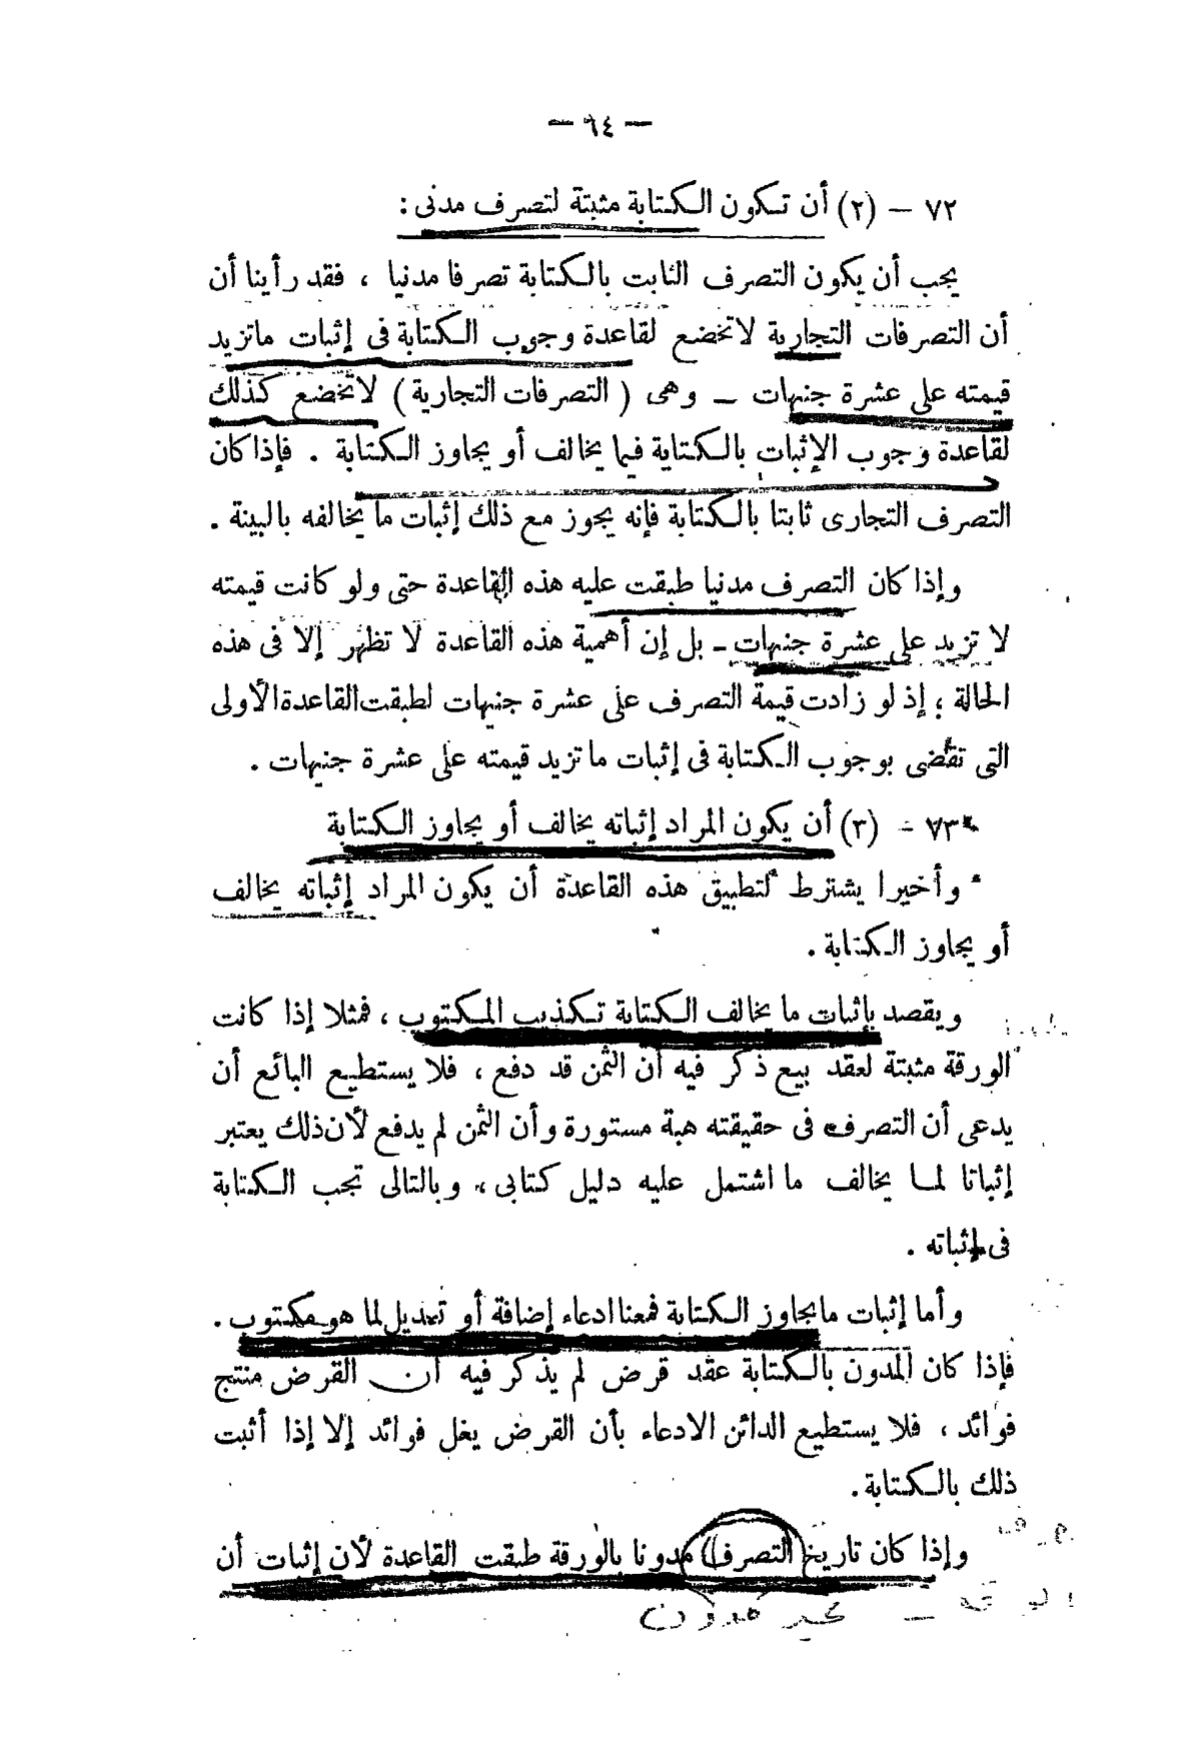 — ٦٤ —
٧٢ — (٢) أن تكون الكتابة مثبتة لتصرف مدنى :
يجب أن يكون التصرف الثابت بالكتابة تصرفا مدنيا ، فقد رأينا أن
أن التصرفات التجارية لا تخضع لقاعدة وجوب الكتابة فى إثبات ما تزيد
قيمته على عشرة جنيهات — وهى ( التصرفات التجارية ) لا تخضع كذلك
لقاعدة وجوب الإثبات بالكتابة فيما يخالف أو يجاوز الكتابة . فإذا كان
التصرف التجارى ثابتا بالكتابة فإنه يجوز مع ذلك إثبات ما يخالفه بالبينة .
وإذا كان التصرف مدنيا طبقت عليه هذه القاعدة حتى ولو كانت قيمته
لا تزيد على عشرة جنيهات — بل إن أهمية هذه القاعدة لا تظهر إلا فى هذه
الحالة ؛ إذ لو زادت قيمة التصرف على عشرة جنيهات لطبقت القاعدة الأولى
التى تقضى بوجوب الكتابة فى إثبات ما تزيد قيمته على عشرة جنيهات .
٧٣ — (٣) أن يكون المراد إثباته يخالف أو يجاوز الكتابة
وأخيرا يشترط لتطبيق هذه القاعدة أن يكون المراد إثباته يخالف
أو يجاوز الكتابة .
ويقصد بإثبات ما يخالف الكتابة تكذيب المكتوب ، فمثلا إذا كانت
الورقة مثبتة لعقد بيع ذكر فيه أن الثمن قد دفع ، فلا يستطيع البائع أن
يدعى أن التصرف فى حقيقته هبة مستورة وأن الثمن لم يدفع لأن ذلك يعتبر
إثباتا لما يخالف ما اشتمل عليه دليل كتابى ، وبالتالى تجب الكتابة
فى إثباته .
وأما إثبات ما يجاوز الكتابة فمعنا ادعاء إضافة أو تعديل لما هو مكتوب .
فإذا كان المدون بالكتابة عقد قرض لم يذكر فيه أن القرض منتج
فوائد ، فلا يستطيع الدائن الادعاء بأن القرض يغل فوائد إلا إذا أثبت
ذلك بالكتابة .
وإذا كان تاريخ التصرف مدونا بالورقة طبقت القاعدة لأن إثبات أن
غير مدون